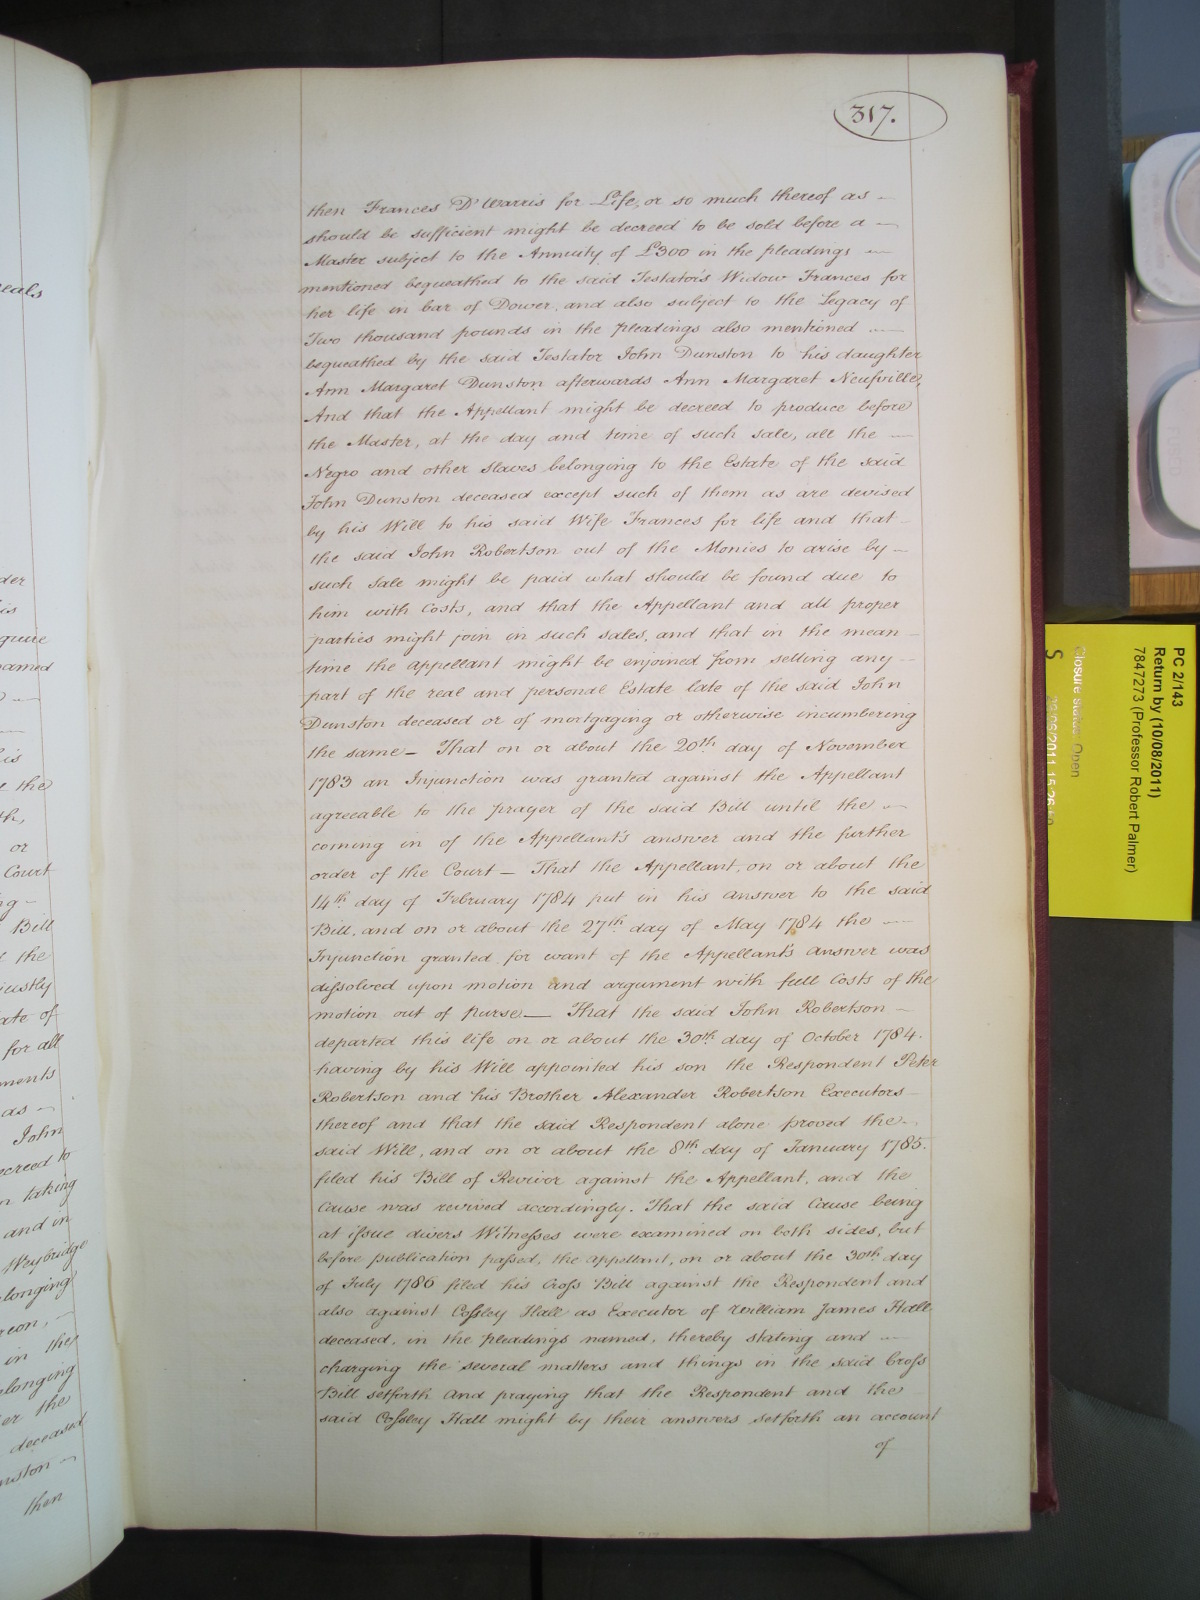 317.
then Frances D'Warris for Life, or so much thereof as
should be sufficient might be decreed to be sold before a
Master subject to the Annuity of £300 in the pleadings
mentioned bequeathed to the said Testator's Widow Frances for
her life in bar of Dower, and also subject to the Legacy of
Two thousand pounds in the pleadings also mentioned
bequeathed by the said Testator John Dunston to his daughter
Ann Margaret Dunston afterwards Ann Margaret Neufville,
And that the Appellant might be decreed to produce before
the Master, at the day and time of such sale, all the
Negro and other Slaves belonging to the Estate of the said
John Dunston deceased except such of them as are devised
by his Will to his said Wife Frances for life and that
the said John Robertson out of the Monies to arise by
such Sale might be paid what should be found due to
him with Costs, and that the Appellant and all proper
parties might join in such sales, and that in the mean
time the appellant might be enjoined from selling any
part of the real and personal Estate late of the said John
Dunston deceased or of mortgaging or otherwise incumbering
the same — That on or about the 20th day of November
1783 an Injunction was granted against the Appellant
agreeable to the prayer of the said Bill until the
coming in of the Appellant's answer and the further
order of the Court — That the Appellant, on or about the
14th day of February 1784 put in his answer to the said
Bill, and on or about the 27th day of May 1784 the
Injunction granted for want of the Appellant's answer was
dissolved upon motion and argument with full Costs of the
motion out of purse — That the said John Robertson
departed this life on or about the 30th day of October 1784.
having by his Will appointed his son the Respondent Peter
Robertson and his Brother Alexander Robertson Executors
thereof and that the said Respondent alone proved the
said Will, and on or about the 8th day of January 1785.
filed his Bill of Revivor against the Appellant, and the
Cause was revived accordingly. That the said Cause being
at issue divers Witnesses were examined on both sides, but
before publication passed, the appellant, on or about the 30th day
of July 1786 filed his Cross Bill against the Respondent and
also against Cossley Hall as Executor of William James Hall
deceased, in the pleadings named, thereby stating and
charging the several matters and things in the said Cross
Bill setforth and praying that the Respondent and the
said Cossley Hall might by their answers setforth an account
of
eals
der
his
quire
named
his
the
th,
or
Court
Bill
the
justly
ate of
for all
ments
as
John
decreed to
taking
and in
Weybridge
longing
reon,
in the
longing
er the
deceased
nston
then
PC 2/143
Return by (10/08/2011)
7847273 (Professor Robert Palmer)
Closure status: Open
S